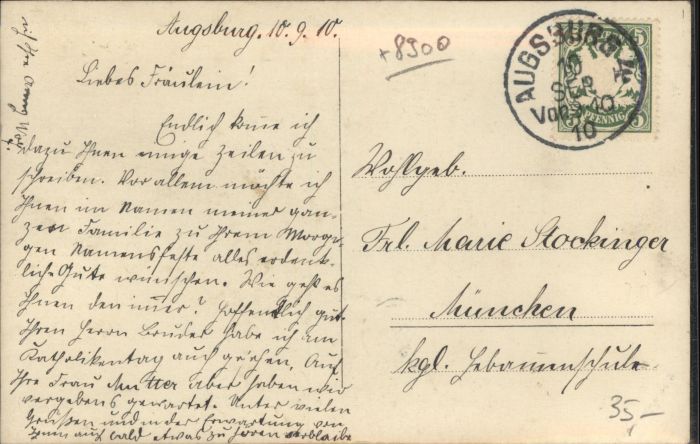 Augsburg, 10.9.10.
+8900
Liebes Fräulein!
Endlich komme ich
dazu Ihnen einige Zeilen zu
schreiben. Vor allem möchte ich
Ihnen im Namen meiner gan-
zen Familie zu Ihrem Morgi-
gen Namensfeste alles erdenk-
liche Gute wünschen. Wie geht es
Ihnen denn immer? Hoffentlich gut.
Ihren Herrn Bruder habe ich am
Katholikentag auch gesehen, Auf
Ihre Frau Mutter aber haben wir
vergebens gewartet. Unter vielen
Grüßen und in der Erwartung von
Ihnen auch bald etwas zu hören verbleibe
ich Ihre
AUGSBURG 2
10
SEP
Vor 9-10
10
5
5
PFENNIG
Wohlgeb.
Frl. Marie Stockinger
München
kgl. Hebammenschule
35,-